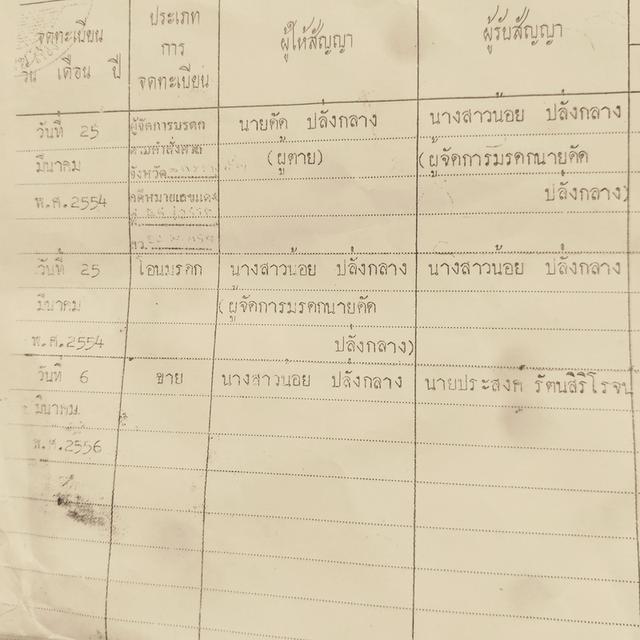 จดทะเบียน
วัน เดือน ปี
ประเภท
การ
จดทะเบียน
ผู้ให้สัญญา
ผู้รับสัญญา
วันที่ 25
มีนาคม
พ.ศ.2554
ผู้จัดการมรดก
ตามคำสั่งศาล
จังหวัด
คดีหมายเลขแดง
นายคัด ปลั่งกลาง
(ผู้ตาย)
นางสาวน้อย ปลั่งกลาง
(ผู้จัดการมรดกนายคัด
ปลั่งกลาง)
วันที่ 25
มีนาคม
พ.ศ.2554
โอนมรดก
นางสาวน้อย ปลั่งกลาง
(ผู้จัดการมรดกนายคัด
ปลั่งกลาง)
นางสาวน้อย ปลั่งกลาง
วันที่ 6
มีนาคม
พ.ศ.2556
ขาย
นางสาวน้อย ปลั่งกลาง
นายประสงค์ รัตนสิริโรจน์